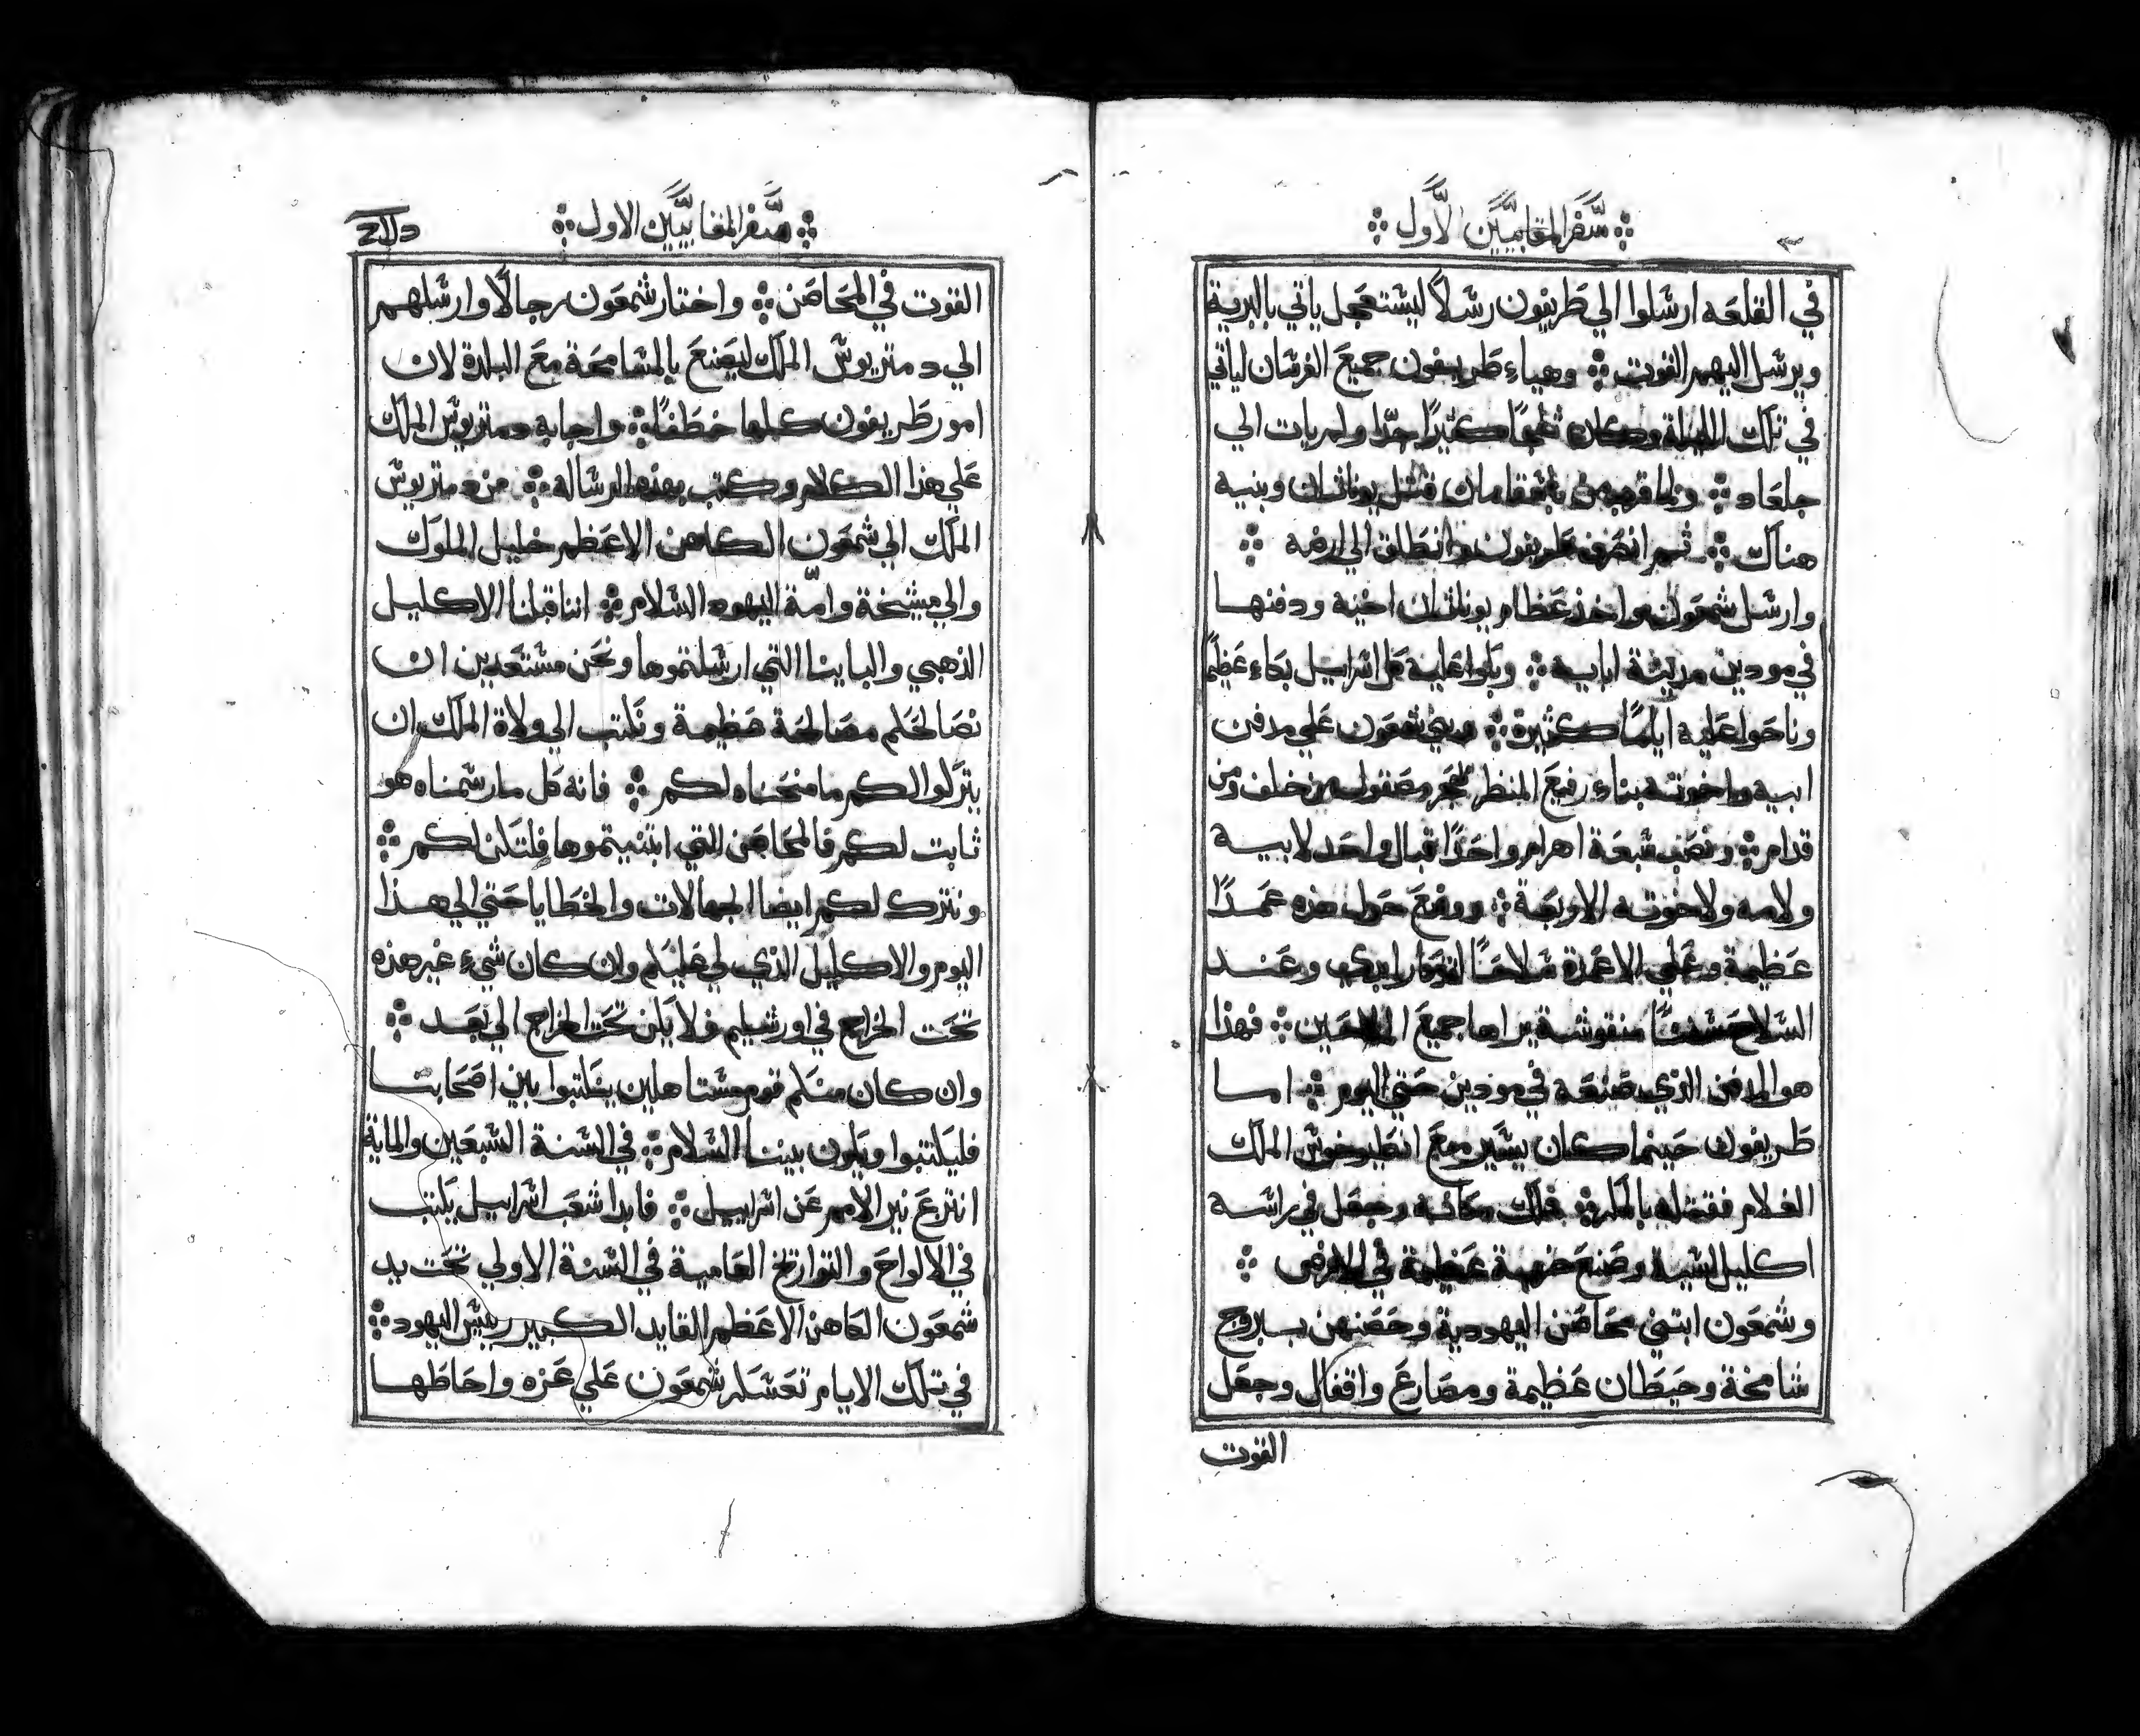 سفر المقابيين الاول
في القلعه ارسلوا الي طريفون رسلاً ليستعجل ياتي بالبرية
ويرسل اليهم القوت وهياء طريفون جميع الفرسان لياتي
في تلك الليلة وكان ثلجًا كثيرًا جدّا ولم يات الي
جلعاد ولما قرب من باشقامان قتل يوناثان وبنيه
هناك ثم انصرف طريفون وانطلق الي ارضه
وارسل شمعون واخذ عظام يوناثان اخيه ودفنها
في مودين مدينة ابايه وبكوا عليه كل اسراييل بكاء عظيمًا
وناحوا عليه ايامًا كثيرة وبني شمعون علي مدفن
ابيه واخوته بناء رفيع المنظر بحجر مصقول من خلف ومن
قدام ونصب سبعة اهرام واحدًا قبال واحد لابيه
ولامه ولاخوته الاربعة ووضع حول هذه عمدًا
عظيمة وعلي الاعمدة سلاحًا لتذكار ابدي وعند
السلاح سفنًا منقوشة يراها جميع الملاحين فهذا
هو المدفن الذي صنعه في مودين حتي اليوم اما
طريفون حينما كان يسير مع انطيوخوس الملك
الغلام فقتله بالمكر فملك مكانه وجعل في راسه
اكليل اسية وصنع ضربة عظيمة في الارض
وشمعون ابتني محاصن اليهودية وحصنهن ببروج
شامخة وحيطان عظيمة ومصارع واقفال وجعل
القوت
سفر المقابيين الاول
القوت في المحاصن واختار شمعون رجالًا وارسلهم
الي دمتريوس الملك ليصنع بالمسامحة مع البلدة لان
امور طريفون كلها خطفًا واجابه دمتريوس الملك
علي هذا الكلام وكتب بهذه الرساله من دمتريوس
الملك الي شمعون الكاهن الاعظم خليل الملوك
والي مشيخة وامّة اليهود السلام اننا قبلنا الاكليل
الذهبي والباينا التي ارسلتموها ونحن مستعدين ان
نصالحكم مصالحة عظيمة ونكتب الي ولاة الملك ان
يتركوا لكم ما منحناه لكم فانه كل ما رسمناه هو
ثابت لكم فالمحاصن التي ابتنيتموها فلتكن لكم
ونترك لكم ايضا الجهالات والخطايا حتي الي هذا
اليوم والاكليل الذي لي عليكم وان كان شيء غير هذه
تحت الخراج في اورشليم فلا يكن تحت الخراج الي بعد
وان كان منكم قوم مستاهلين يكتبوا بين اصحابنا
فليكتتبوا ويكون بيننا السلام في السنة السبعين والماية
انتزع نير الامم عن اسراييل فابدا شعب اسراييل يكتب
في الالواح والتواريخ العامية في السنة الاولي تحت يد
شمعون الكاهن الاعظم القايد الكبير رييس اليهود
في تلك الايام تعسكر شمعون علي غزه واحاطها